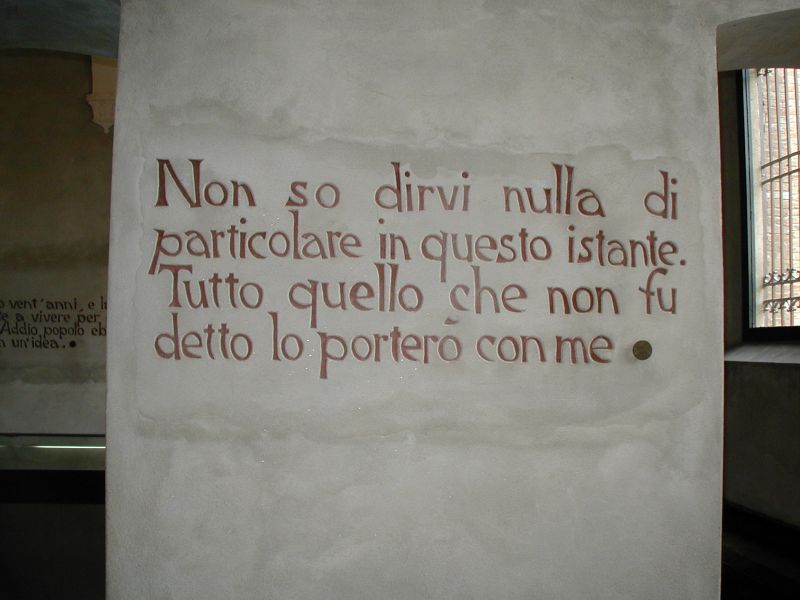 Non so dirvi nulla di
particolare in questo istante.
Tutto quello che non fu
detto lo porterò con me
vent'anni, e
a vivere per
Addio popolo
un'idea.